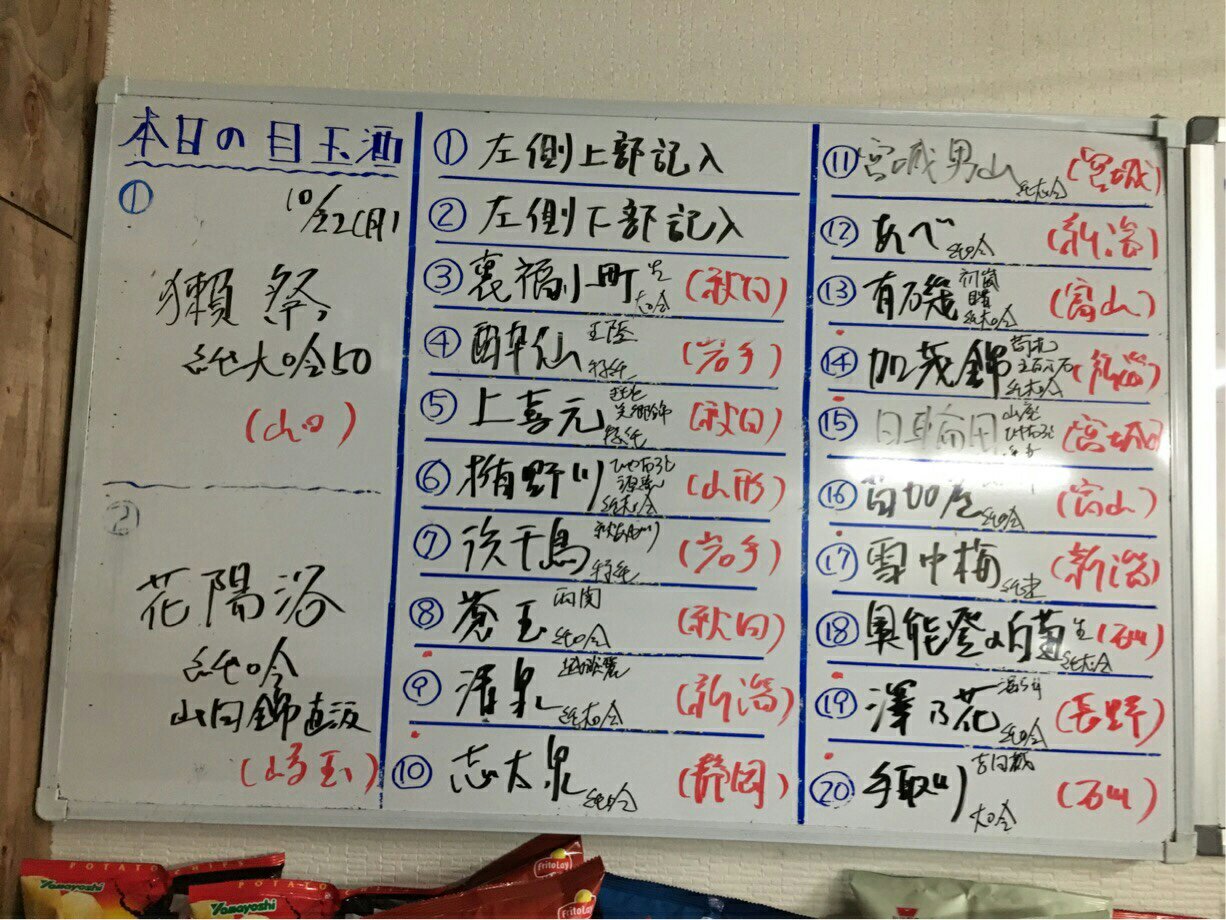 本日の目玉酒
①
10/22(月)
獺祭
純大吟50
(山口)
②
花陽浴
純吟
山田錦直汲
(埼玉)
① 左側上部記入
② 左側下部記入
③ 裏福小町 生 大吟 (秋田)
④ 酔仙 特純 (岩手)
⑤ 上喜元 特純 (秋田)
⑥ 楯野川 ひやおろし 純大吟 (山形)
⑦ 浜千鳥 特純 (岩手)
⑧ 蒼玉 両関 純吟 (秋田)
⑨ 清泉 純大吟 (新潟)
⑩ 志太泉 純吟 (静岡)
⑪ 宮城男山 純大吟 (宮城)
⑫ あべ 純吟 (新潟)
⑬ 有磯 初嵐 純大吟 (富山)
⑭ 加茂錦 純大吟 (新潟)
⑮ 日高見 ひやおろし (宮城)
⑯ 純吟 (富山)
⑰ 雪中梅 純 (新潟)
⑱ 奥能登の白菊 生 純大吟 (石川)
⑲ 澤乃花 純吟 (長野)
⑳ 手取川 吉田蔵 大吟 (石川)
POTATO CHIPS
Yamayoshi
Yamayoshi
FritoLay
FritoLay